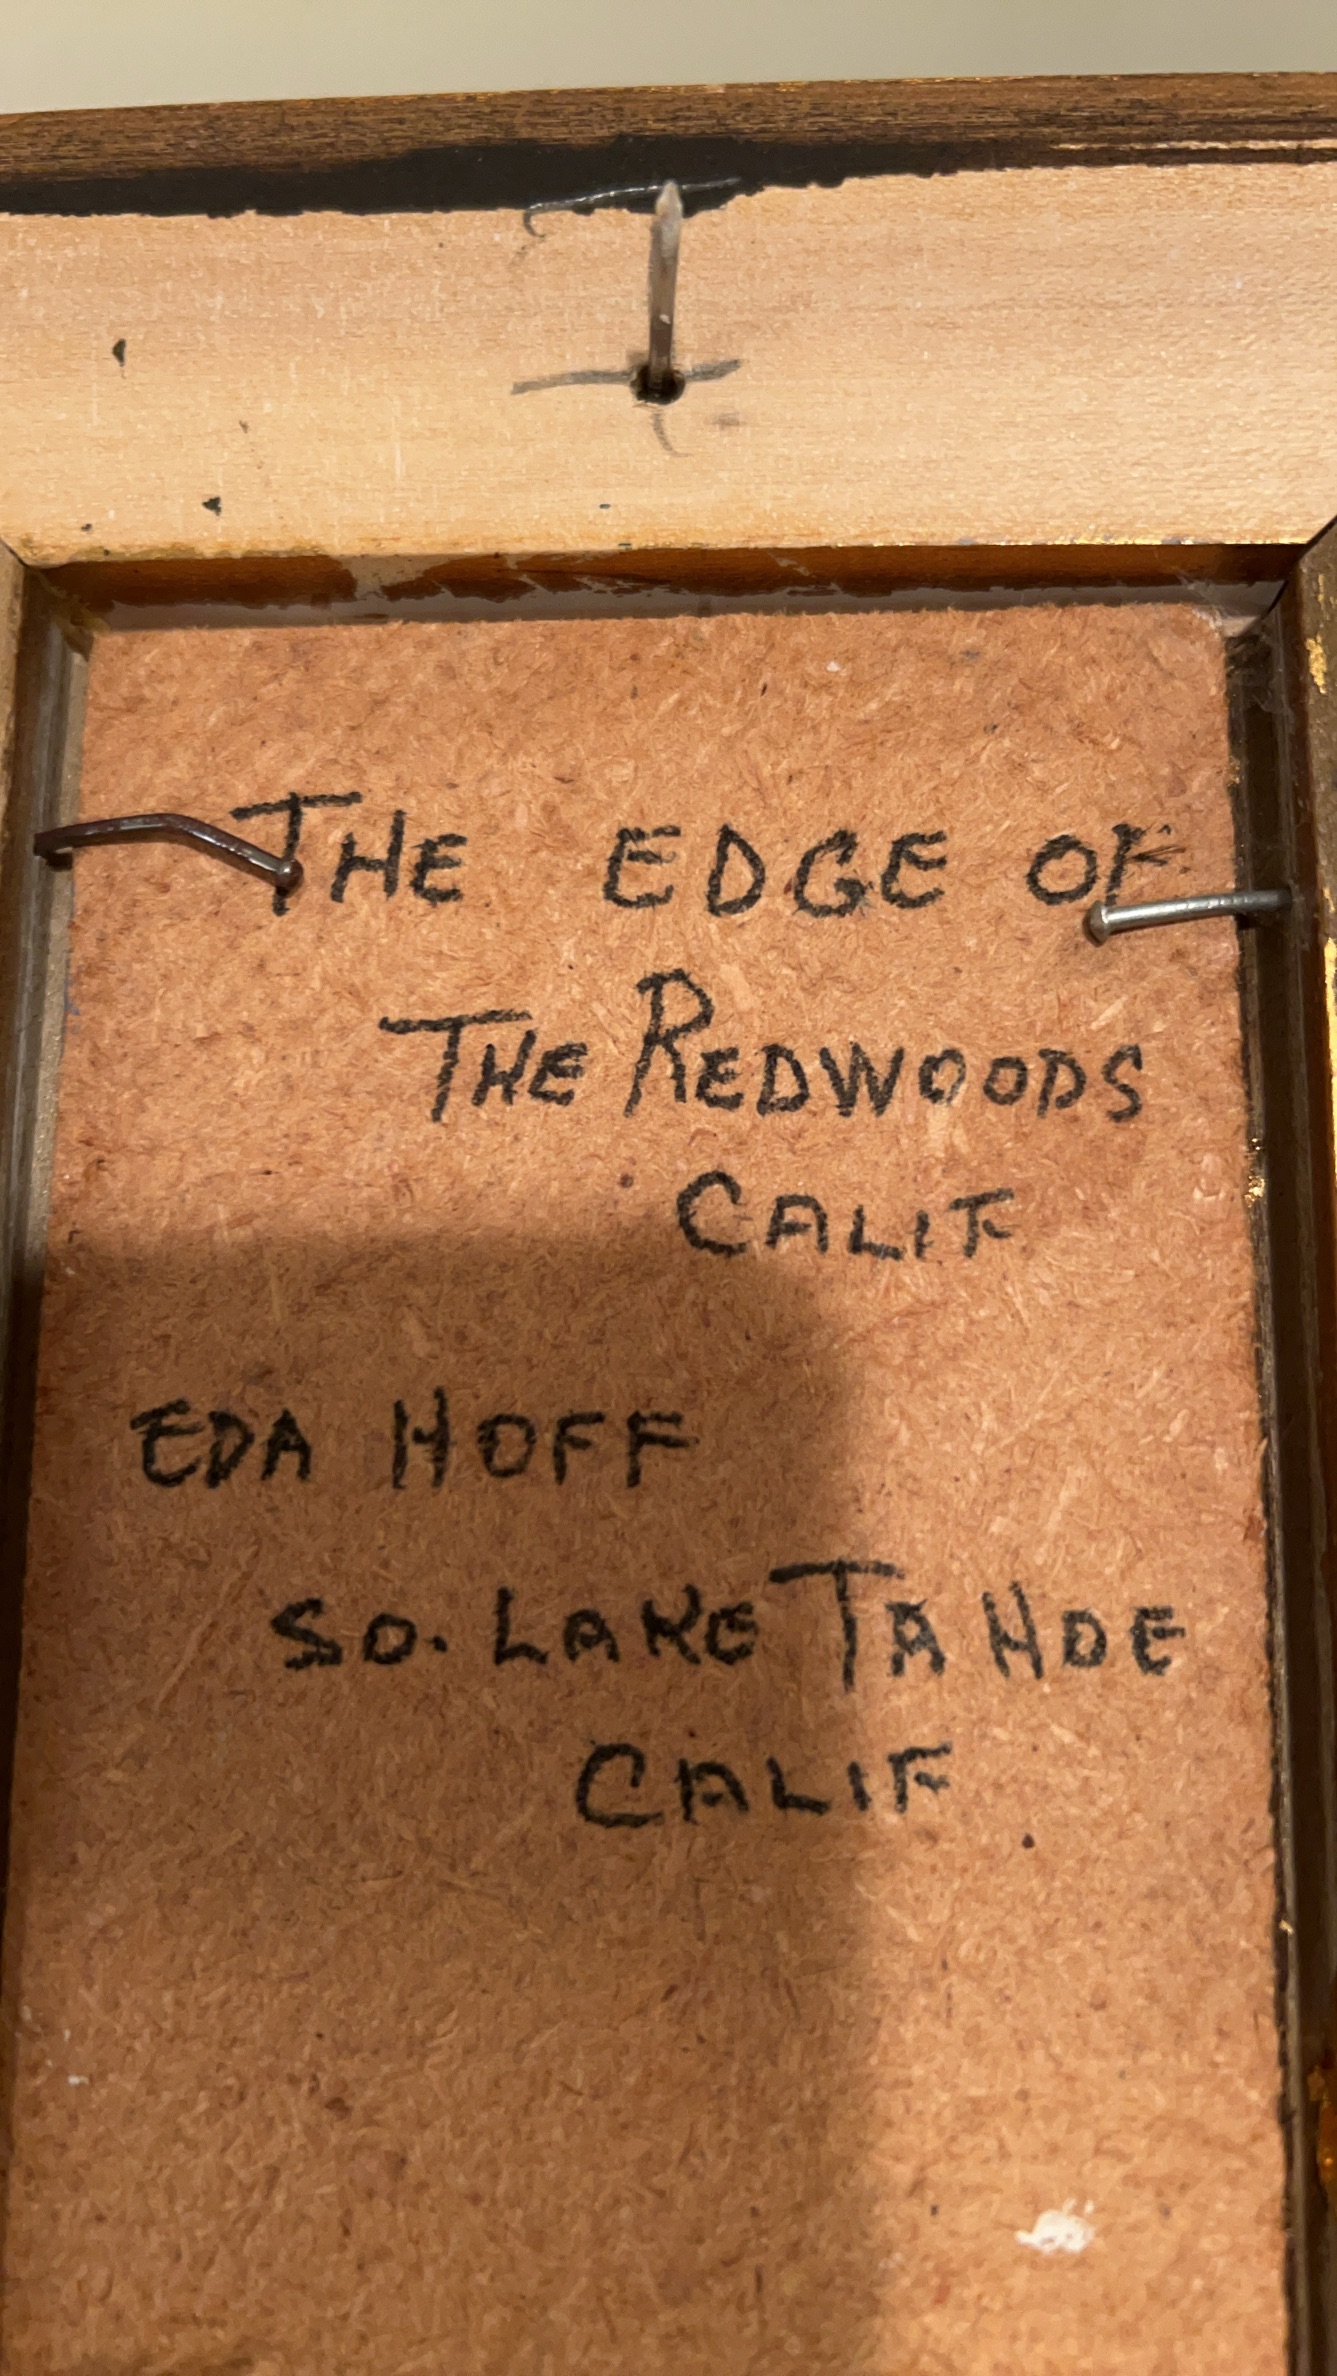 THE EDGE OF
THE REDWOODS
CALIF
EDA HOFF
SO. LAKE TAHOE
CALIF